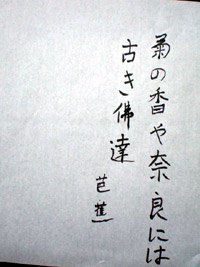 菊の香や奈良には
古き佛達
芭蕉